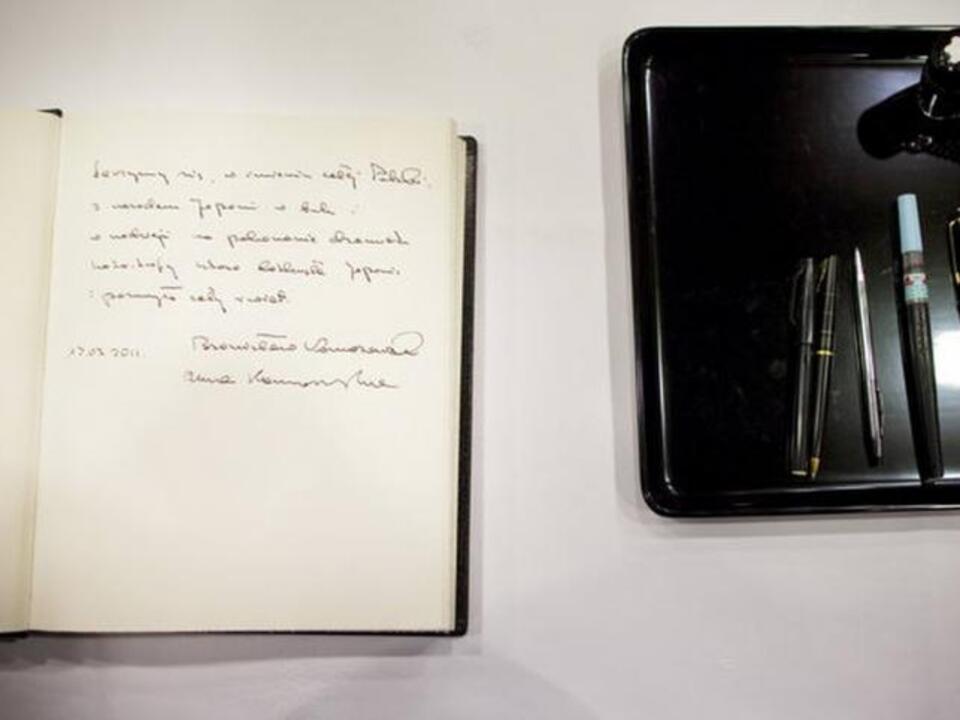 Łączymy się, w imieniu całej Polski,
z narodem Japonii w bólu i
w nadziei na pokonanie dramatu
katastrofy która dotknęła Japonię
i poruszyła cały świat.
17.03.2011. Bronisław Komorowski
Anna Komorowska